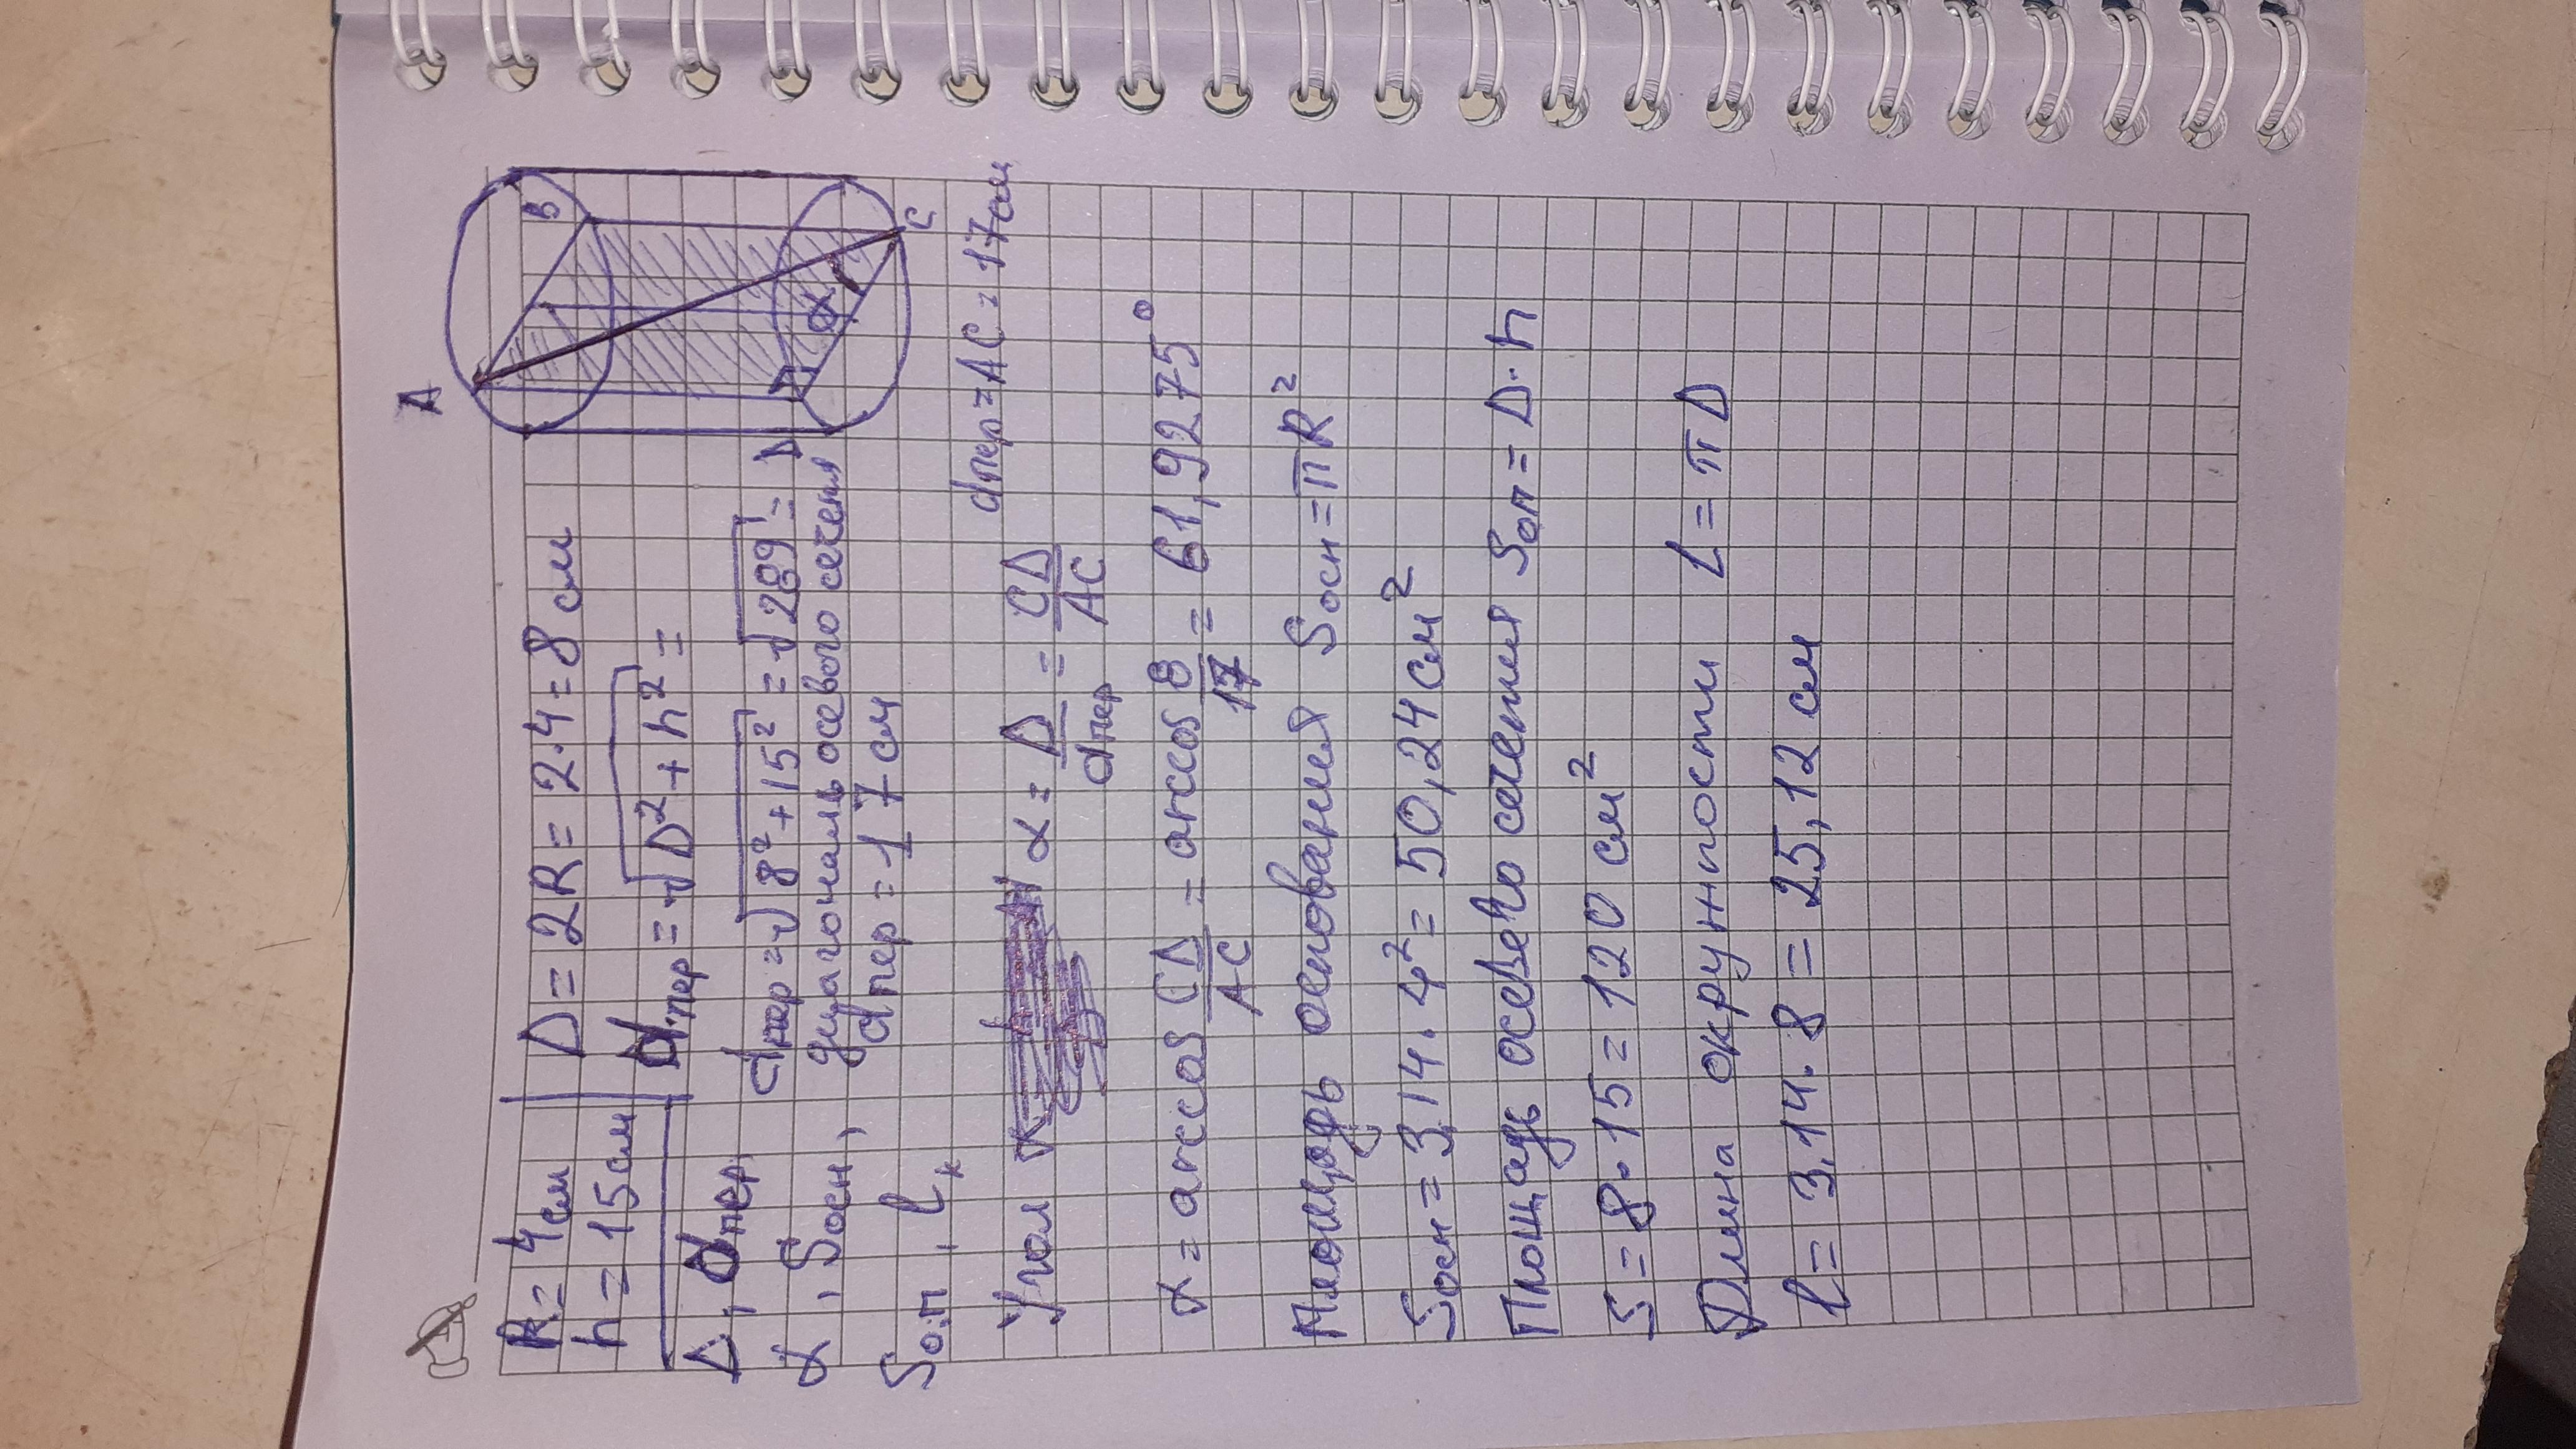 R=4см
h=15см
D, dпер
α, Sосн,
Sо.п, lк
D=2R=2·4=8см
dпер=√D²+h²=
dпер=√8²+15²=√289=
диагональ осевого сечения
dпер=17см
A
B
α
D
C
dпер=AC=17см
Угол α=D/dпер=CD/AC
α=arccos CD/AC=arccos 8/17=61,9275°
Площадь основания Sосн=πR²
Sосн=3,14·4²=50,24см²
Площадь осевого сечения Sоп=D·h
S=8·15=120см²
Длина окружности L=πD
l=3,14·8=25,12см